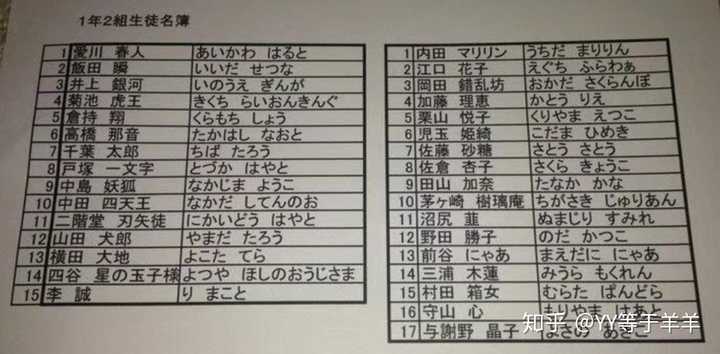 1年2組生徒名簿
1 愛川 春人 あいかわ はると
2 飯田 瞬 いいだ せつな
3 井上 銀河 いのうえ ぎんが
4 菊池 虎王 きくち らいおんきんぐ
5 倉持 翔 くらもち しょう
6 高橋 那音 たかはし なおと
7 千葉 太郎 ちば たろう
8 戸塚 一文字 とづか はやと
9 中島 妖狐 なかじま ようこ
10 中田 四天王 なかだ してんのお
11 二階堂 刃矢徒 にかいどう はやと
12 山田 犬郎 やまだ たろう
13 横田 大地 よこた てら
14 四谷 星の玉子様 よつや ほしのおうじさま
15 李 誠 り まこと
1 内田 マリリン うちだ まりりん
2 江口 花子 えぐち ふらわぁ
3 岡田 錯乱坊 おかだ さくらんぼ
4 加藤 理恵 かとう りえ
5 栗山 悦子 くりやま えつこ
6 児玉 姫綺 こだま ひめき
7 佐藤 砂糖 さとう さとう
8 佐倉 杏子 さくら きょうこ
9 田山 加奈 たなか かな
10 茅ヶ崎 樹璃庵 ちがさき じゅりあん
11 沼尻 菫 ぬまじり すみれ
12 野田 勝子 のだ かつこ
13 前谷 にゃあ まえだに にゃあ
14 三浦 木蓮 みうら もくれん
15 村田 箱女 むらた ぱんどら
16 守山 心 もりやま はあと
17 与謝野 晶子 よさの あきこ
知乎 @YY等于羊羊